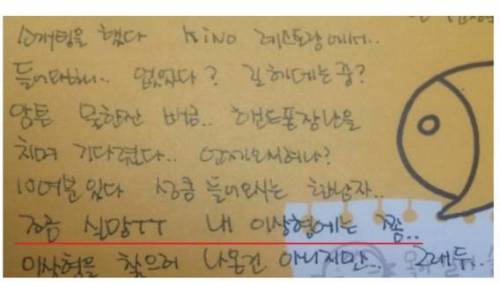 소개팅을 했다 KINO 레스토랑에서..
들어와보니.. 없었다? 길 헤메는 중?
암튼 물한잔 배꼼.. 핸드폰장난을
치며 기다렸다.. 언제오시려나?
10여분 있다 성큼 들어오시는 한남자..
조금 실망ㅜㅜ 내 이상형에는 쫌..
이상형을 찾으러 나온건 아니지만.. 그래두..